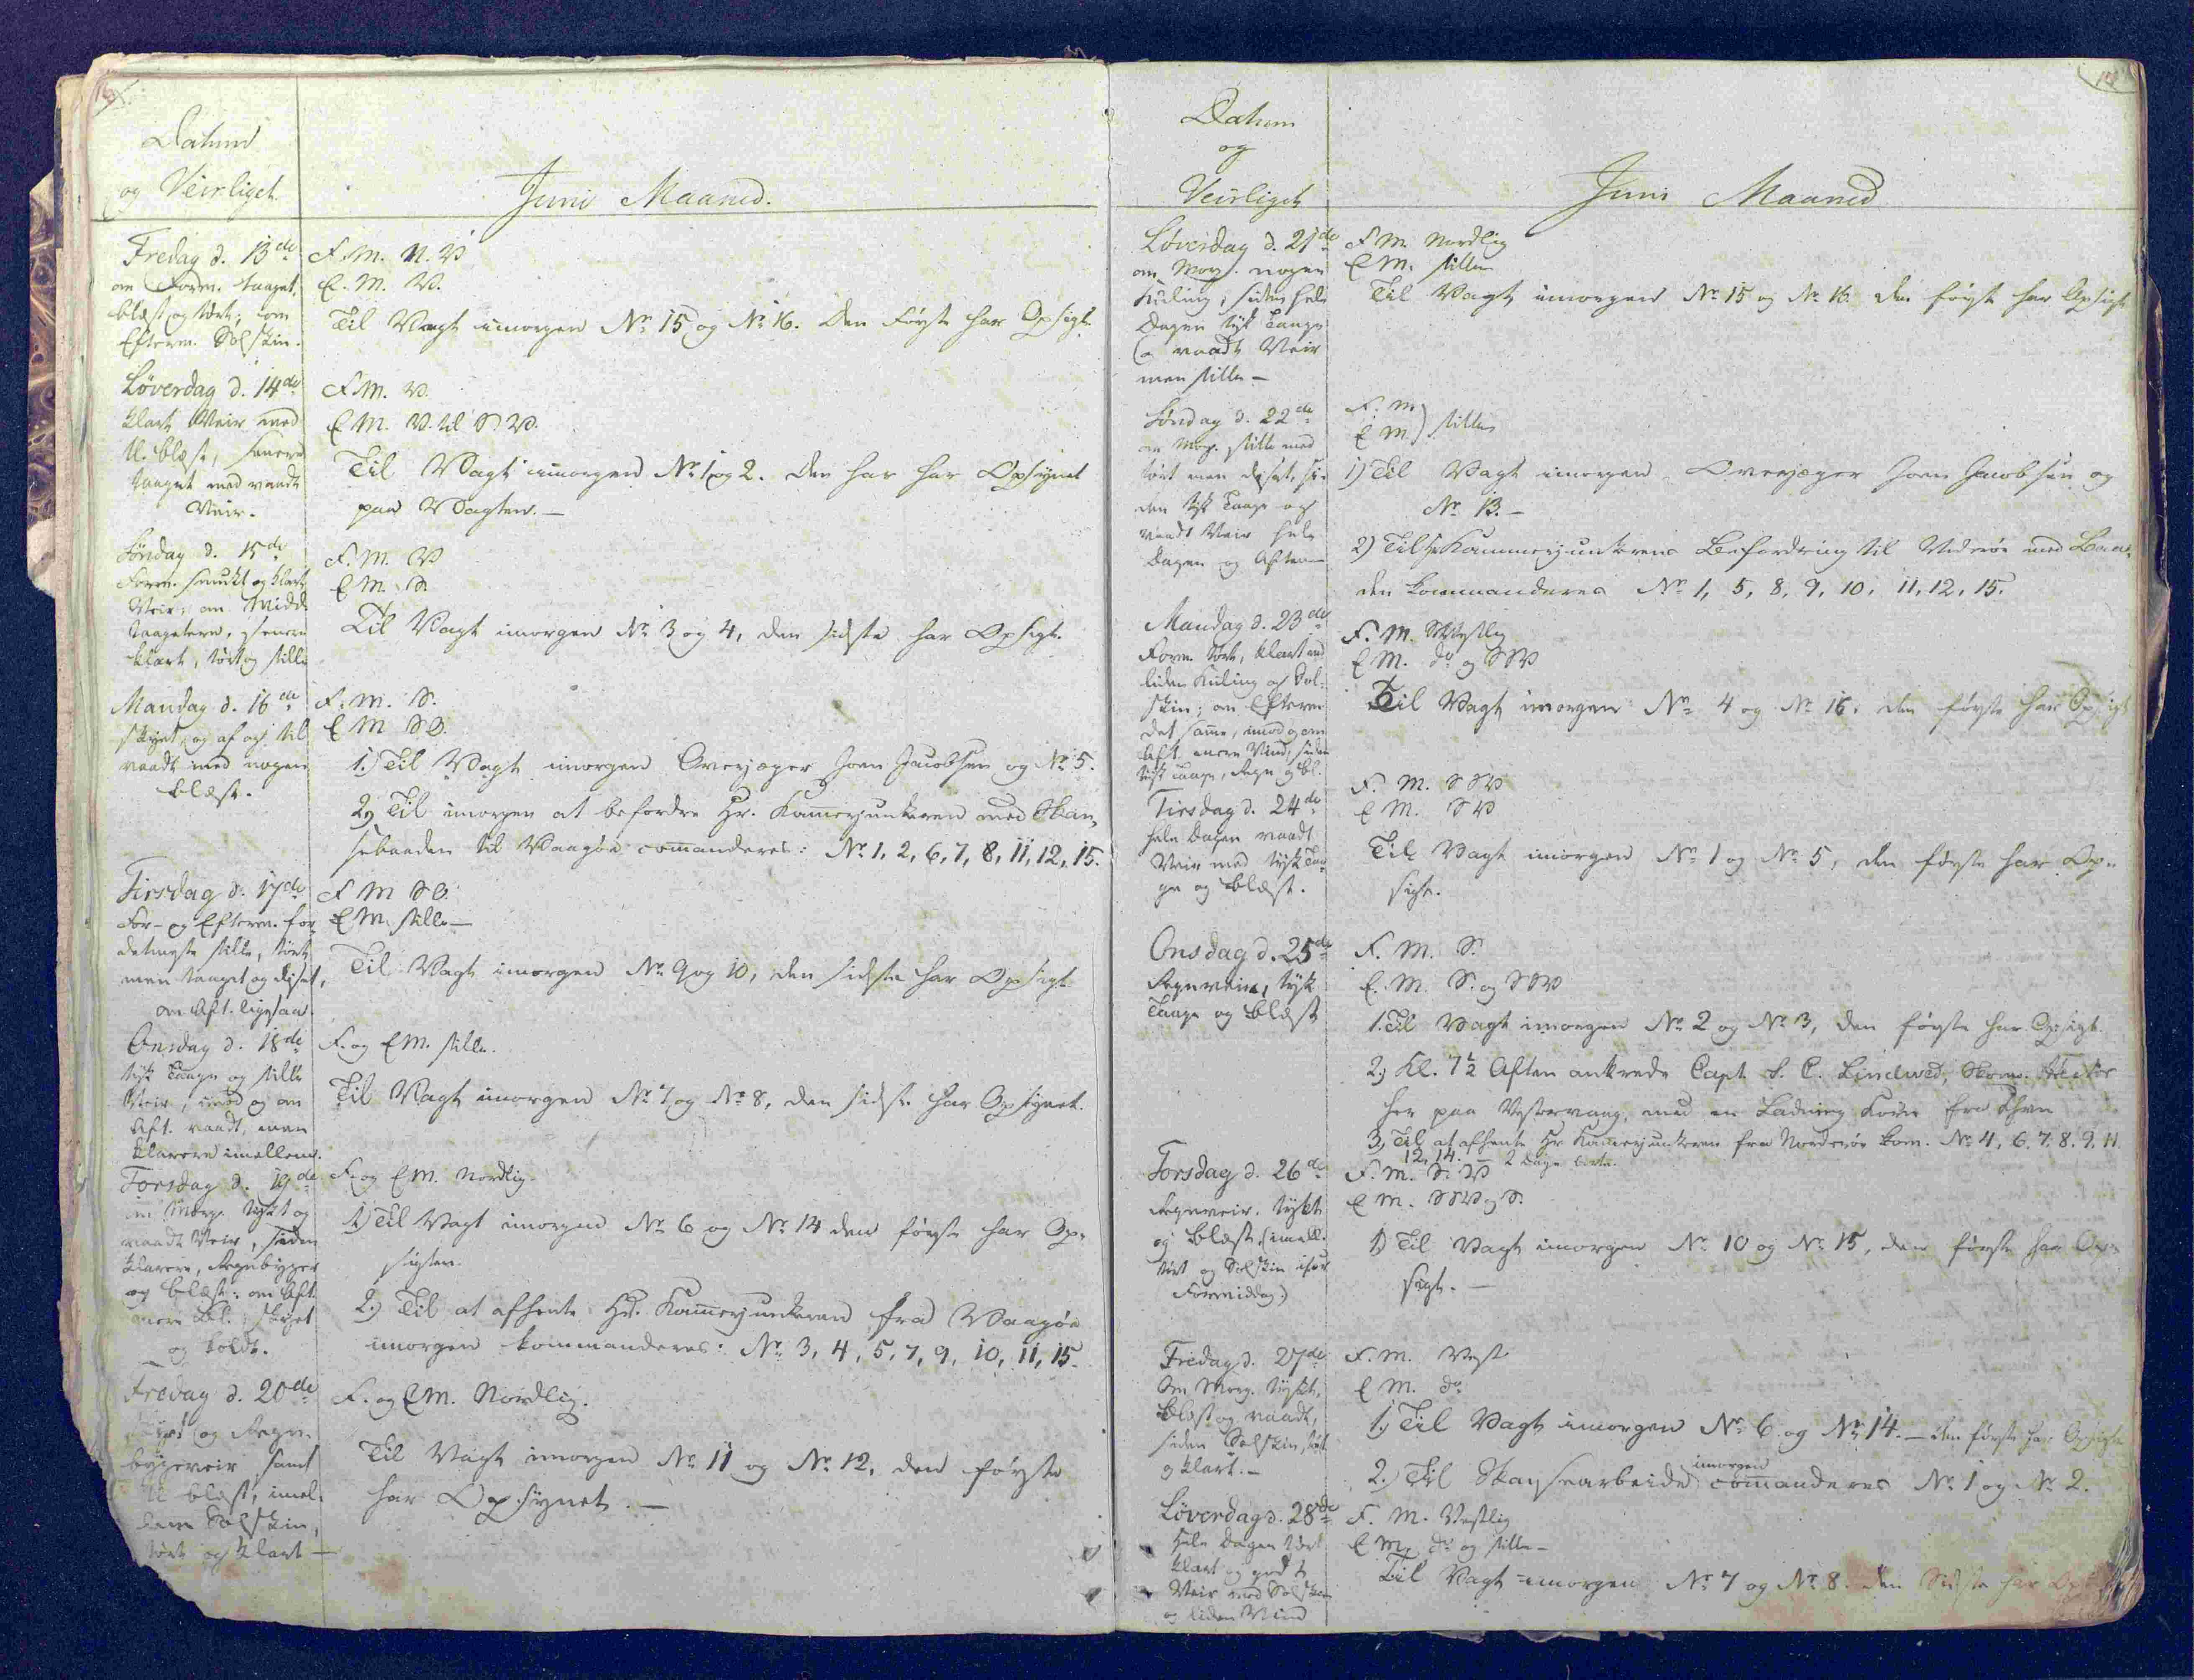 Datum
og Veirliget.
Juni Maaned.
Fredag d. 13de
om Form. taaget,
blæst og tørt; om
Efterm. Solskin.
F. M. N. V
E. M. V.
Til Vagt imorgen No 15 og No 16. Den Første har Opsigt.
Løverdag d. 14de
klart Veir med
blæst, senere
taaget med vaadt
Veir.
F M. V.
E M. V. til S. V.
Til Vagt imorgen No 1 og 2. Den har har Opsynet
paa Vagten. —
Søndag d. 15de
Form. smukt og klart
Veir; om Midd.
taagetere, senere
klart, tørt og stille
F. M. V
E M. S.
Til Vagt imorgen No 3 og 4, den sidste har Opsigt.
Mandag d. 16de
skyet, og af og til
vaadt med nogen
blæst.
F. M. S.
E M S O.
1.) Til Vagt imorgen Overjæger Joen Jacobsen og No 5.
2.) Til imorgen at befordre Hr. Kamerjunkeren med Skan,
sebaaden til Vaagøe comanderes: No 1, 2, 6, 7, 8, 11, 12, 15.
Tirsdag d. 17de
For- og Efterm. for
detmeste stille, tørt
men taaget og diset,
om Aft. ligesaa.
F M S O.
E M. stille —
Til Vagt imorgen No 9 og 10, den sidste har Opsigt
Onsdag d. 18de
tyk Taage og stille
Veir, imod og om
Aft. vaadt, men
klarere imellem.
F. og E M. stille.
Til Vagt imorgen No 7 og No 8, den sidste har Opsynet.
Torsdag d. 19de
om Morg. tykt og
vaadt Veir, siden
klarere, Regnbyger
og blæst; om Aft.
mere Bl. skyet
og koldt.
F. og E M. Nordlig.
1.) Til Vagt imorgen No 6 og No 14 den første har Op-
sigten.
2.) Til at afhente Hr. Kamerjunkeren fra Vaagøe
imorgen kommanderes: No 3, 4, 5, 7, 9, 10, 11, 15.
Fredag d. 20de
og Regn-
bygeveir samt
blæst, imel-
lem Solskin,
tørt og klart —
F. og E M. Nordlig.
Til Vagt imorgen No 11 og No 12, den første
har Opsynet. —
Datum
og
Veirliget
Juni Maaned
Løverdag d. 21de
om Morg. nogen
Kuling, siden hele
Dagen tyk Taage
og vaadt Veir
men stille —
F M. Nordlig
E M. stille
Til Vagt imorgen No 15 og No 16 den første har Opsigt
Søndag d. 22de
om Morg. stille med
tørt men diset, si-
den tyk Taage og
vaadt Veir hele
Dagen og Aftenen
F. M
E M } stille
1) Til Vagt imorgen Overjæger Joen Jacobsen og
No 13. —
2) Til Hr Kammerjunkerens Befordring til Viderøe med Baa-
den kommanderes No 1, 5, 8, 9, 10, 11, 12, 15.
Mandag d. 23de
Form. tørt, klart med
liden Kuling og Sol-
skin; om Efterm
det samme, imod og om
Aft. mere Vind, siden
tyk Taage, Regn og Bl.
F. M. Vestlig
E M. do og S S V
Til Vagt imorgen No 4 og No 16. den første har Opsigt
Tirsdag d. 24de
hele Dagen vaadt
Veir med tyk Taa-
ge og blæst.
F. M. S S V
E M. S V
Til Vagt imorgen No 1 og No 5, den første har Op-
sigt.
Onsdag d. 25de
Regnveir, tyk
Taage og blæst
F. M. S.
E. M. S. og S S V
1. Til Vagt imorgen No 2 og No 3, den første har Opsigt.
2.) Kl. 7 1/2 Aften ankrede Capt. Lindved,
her paa Vestervaag, med en Ladning Korn fra Khvn
3.) Til at afhente Hr Kamerjunkeren fra Norderøe kom. No 4, 6. 7. 8. 9. 11
12, 14. — 2 Dage borte.
Torsdag d. 26de
Regnveir, tykt
og blæst, (imell.
tørt og Solskin især
Formiddag.)
F. M. S. V
E M. S S V og S.
1) Til Vagt imorgen No 10 og No 15, den første har Op-
sigt. —
Fredag d. 27de
Om Morg. tykt,
Blæst og vaadt,
siden Solskin, tørt
og klart. —
F. M. Vest
E M. do
1.) Til Vagt imorgen No 6 og No 14. — den første har Opsigten
2.) Til Skansearbeide imorgen comanderes No 1 og No 2.
Løverdag d. 28de
Hele Dagen tørt
klart og godt
Veir med Solskin
og liden Vind
F. M. Vestlig
E M, do og stille —
Til Vagt imorgen No 7 og No 8. den Sidste har